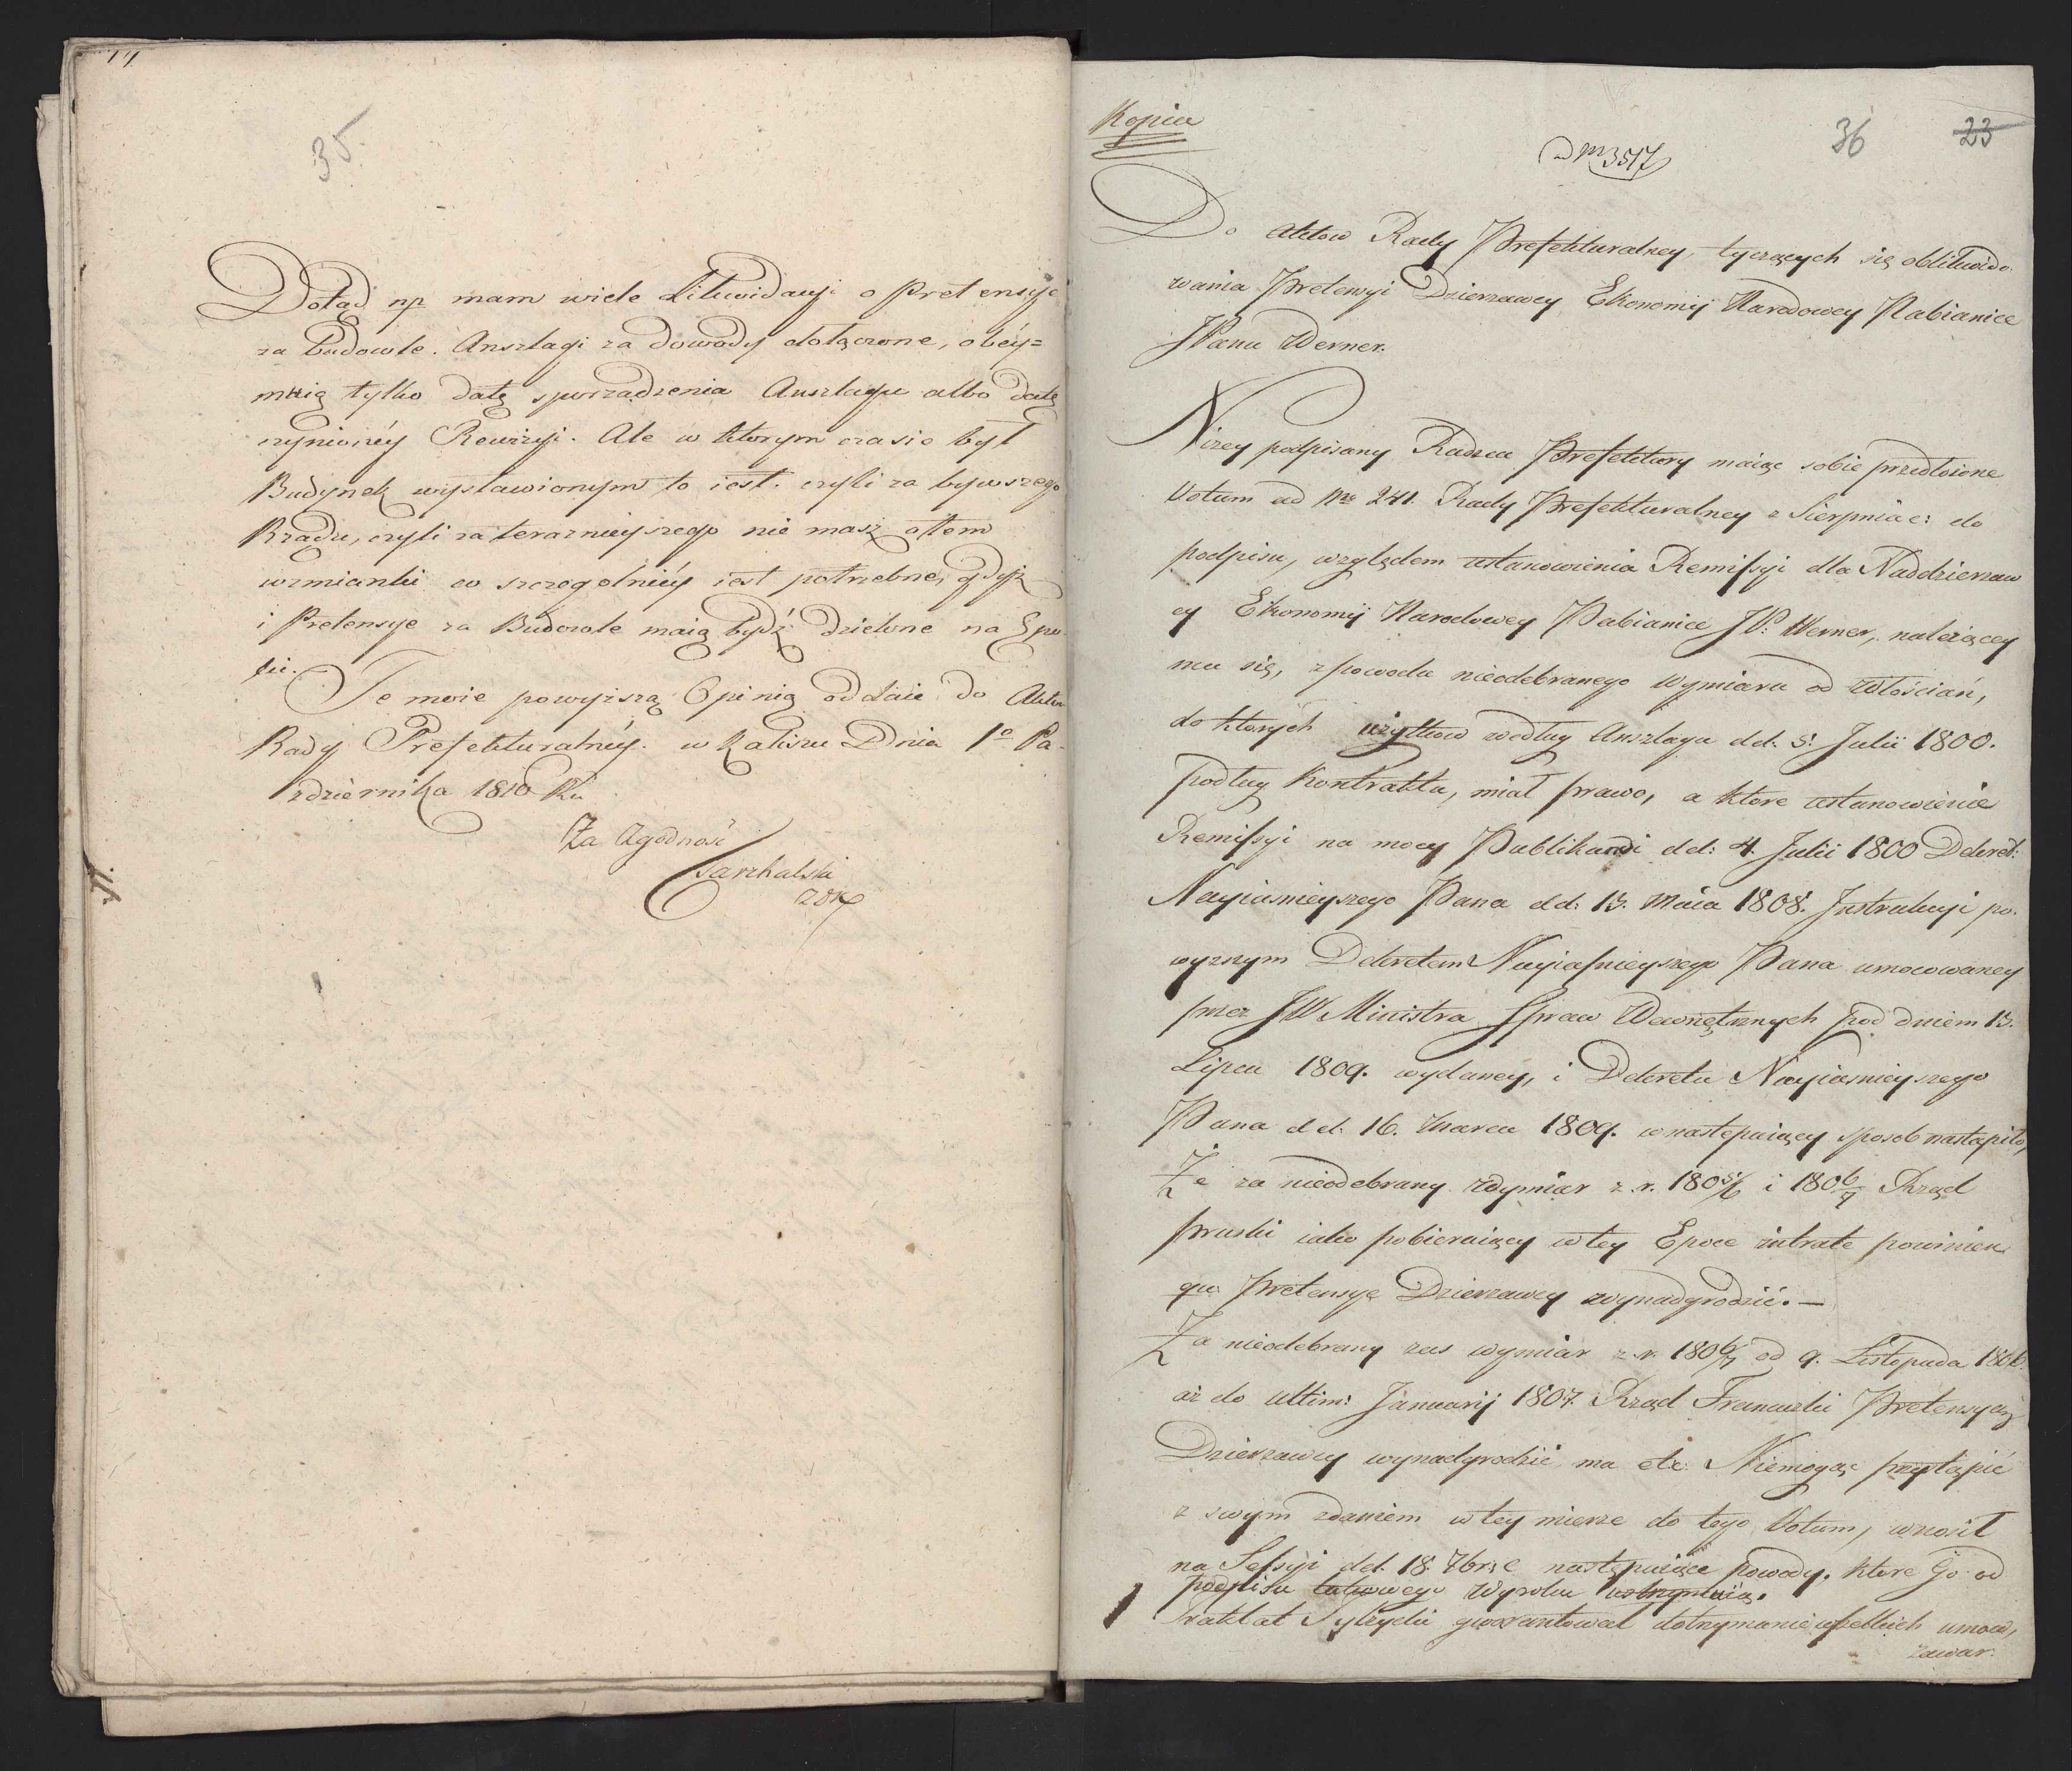 35
Dotąd np mam wiele Likwidacyi o Pretensye
za Budowle. Anszlagi za dowody dołączone, obéy=
muią tylko datę sporządzenia Anszlagu albo datę
czynionéy Rewizyi. Ale w ktorym czasie był
Budynek wystawionym to iest. czyli za bywszego
Rządu, czyli za teraznieyszego nie masz o tem
wzmianki co szczegolniéy iest potrzebne, gdyż
i Pretensye za Budowle maią bydź dzielone na Epo-
ki.
Te moie powyższą Opinią oddaie do Aktow
Rady Prefekturalnéy. w Kaliszu Dnia 1º Pa-
zdziernika 1810 Ru
Za Zgodność
Kopia
ad Nr 3517
36 23
Do Aktow Rady Prefekturalney, tyczących się oblikwido-
wania Pretensyi Dzierzawcy Ekonomij Narodowey Pabianice
JPana Werner.
Nizey podpisany Radzca Prefektury maiąc sobie przedłożone
Votum ad Nro 241. Rady Prefekturalney z Sierpnia c: do
podpisu, względem ustanowienia Remissyi dla Naddzierzaw
cy Ekonomij Narodowey Pabianice JP: Werner, należącey
mu się, z powodu nieodebranego Wymiaru od Włościan,
do ktorych użytkow według Anszlagu dd. 5. Julii 1800.
podług Kontraktu, miał prawo, a ktore ustanowienie
Remissyi na mocy Publikandi dd: 4. Julii 1800 Dekret:
Nayiasnieyszego Pana dd: 13. Maia 1808. Instrukcyi po-
wyzszym Dekretem Nayiasnieyszego Pana umocowaney
przez JW Ministra Spraw Wewnętrznych pod dniem 13.
Lipca 1809. wydaney, i Dekretu Nayiasnieyszego
Pana dd. 16. Marca 1809. w następuiący sposob nastąpiło,
Że za nieodebrany Wymiar z r. 1805/6 i 1806/7 Rząd
pruski iako pobieraiący w tey Epoce intratę powinien
qu. pretensyę Dzierzawcy wynadgrodzić. —
Za nieodebrany zas wymiar z r. 1806/7 od 9. Listopada 1806.
aż do ultim: Januarij 1807. Rząd Francuzki Pretensyą
Dzierzawcy wynadgrodzić ma etc. Niemogąc przystąpić
z swym zdaniem w tey mierze do tego Votum, wnosił
na Sessyi dd. 18. 7bris c następuiące powody, ktore Go od
podpisu takowego Wyroku wstrzymuią.
1 Traktat Tylżycki gwarantował dotrzymanie wszelkich umow,
zawar.